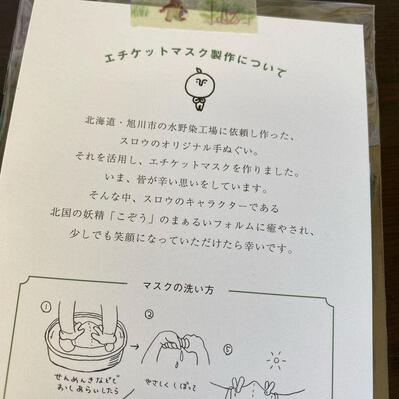 エチケットマスク製作について
北海道・旭川市の水野染工場に依頼し作った、
スロウのオリジナル手ぬぐい。
それを活用し、エチケットマスクを作りました。
いま、皆が辛い思いをしています。
そんな中、スロウのキャラクターである
北国の妖精「こぞう」のまぁるいフォルムに癒やされ、
少しでも笑顔になっていただけたら幸いです。
マスクの洗い方
①
②
⑤
せんめんきなどで
おしあらいしたら
やさしくしぼって